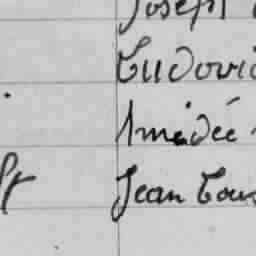 Joseph
Ludovic
Amédée
Jean Tous